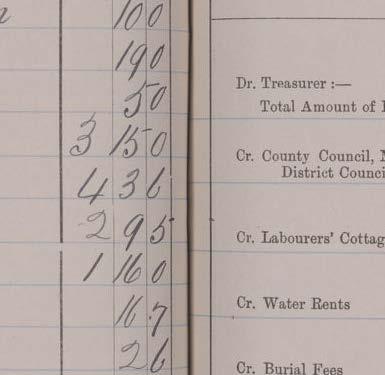 10 0
19 0
5 0
3 15 0
4 3 6
2 9 5
1 16 0
16 7
2 6
Dr. Treasurer :—
Total Amount of
Cr. County Council,
District Counci
Cr. Labourers' Cottag
Cr. Water Rents
Cr. Burial Fees